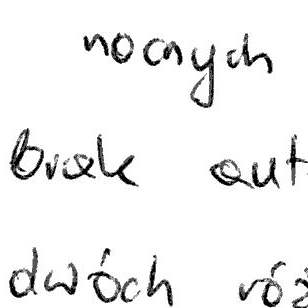 nocnych
brak aut
dwóch róż